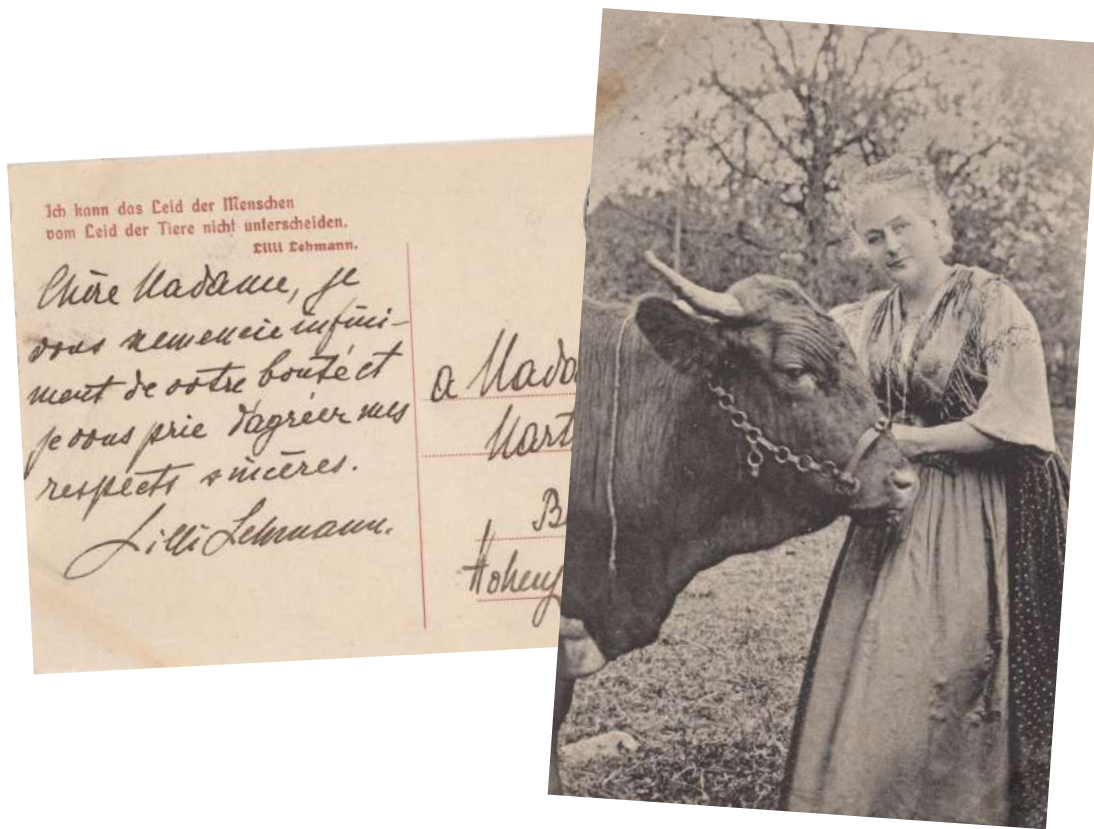 Ich kann das Leid der Menschen
vom Leid der Tiere nicht unterscheiden.
Lilli Lehmann.
Chère Madame, je
vous remercie infini-
ment de votre bonté et
je vous prie d'agréer mes
respects sincères.
Lilli Lehmann.
a Mada
Mart
B
Hohenz